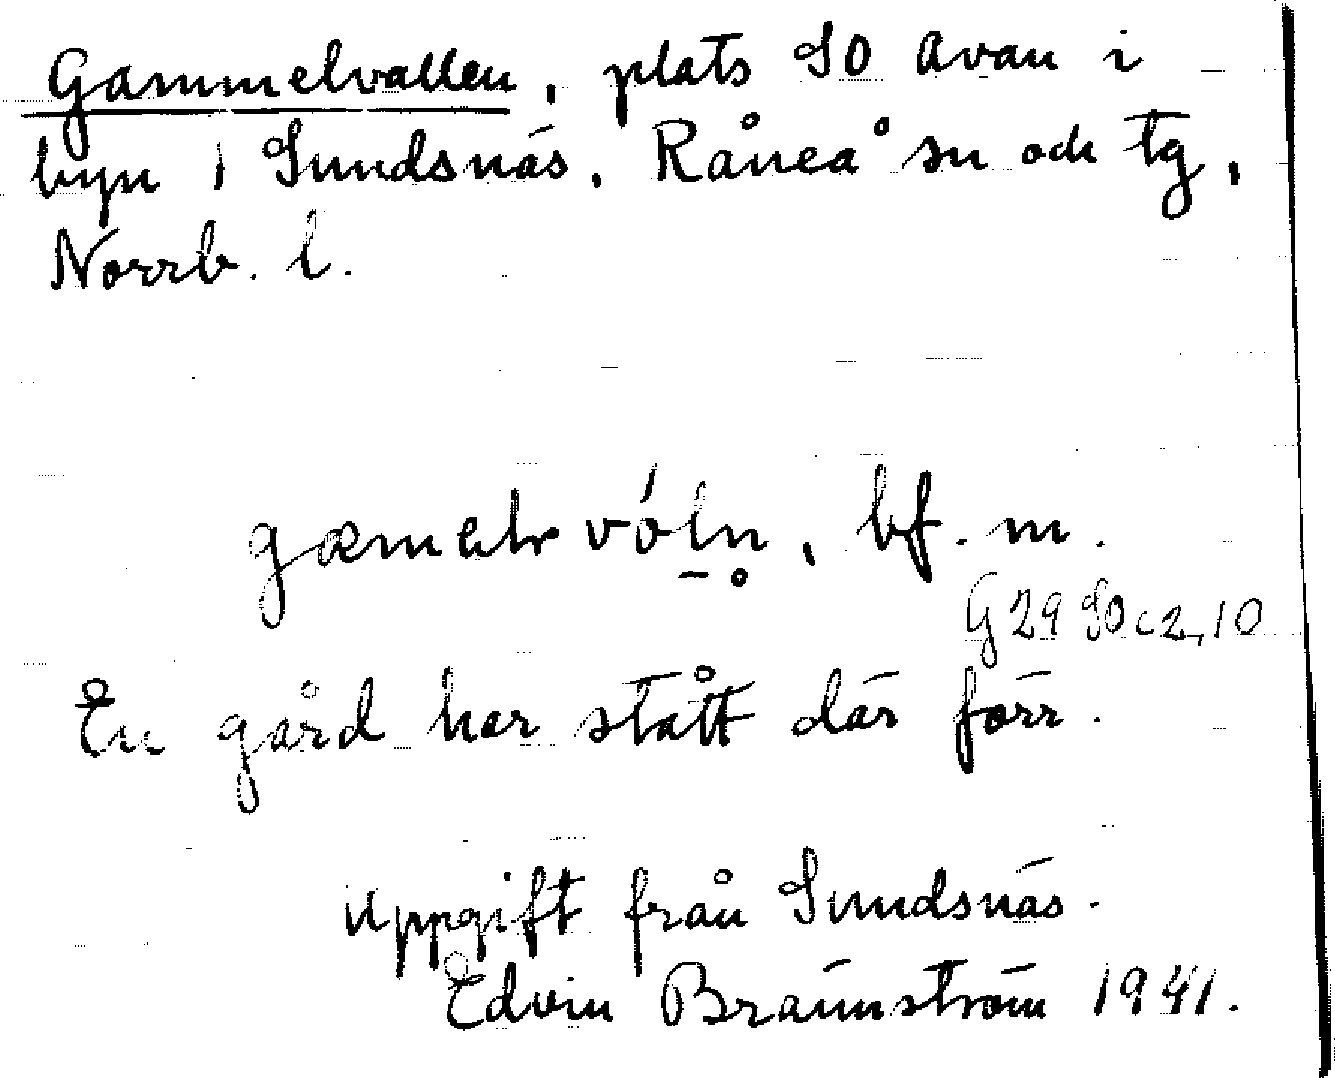 Gammelvallen, plats SO Avan i
byn i Sundsnäs, Råneå sn och tg,
Norrb. l.
bf. m.
G 29 SO c 2, 10
En gård har stått där förr.
Uppgift från Sundsnäs.
Edvin Brännström 1941.